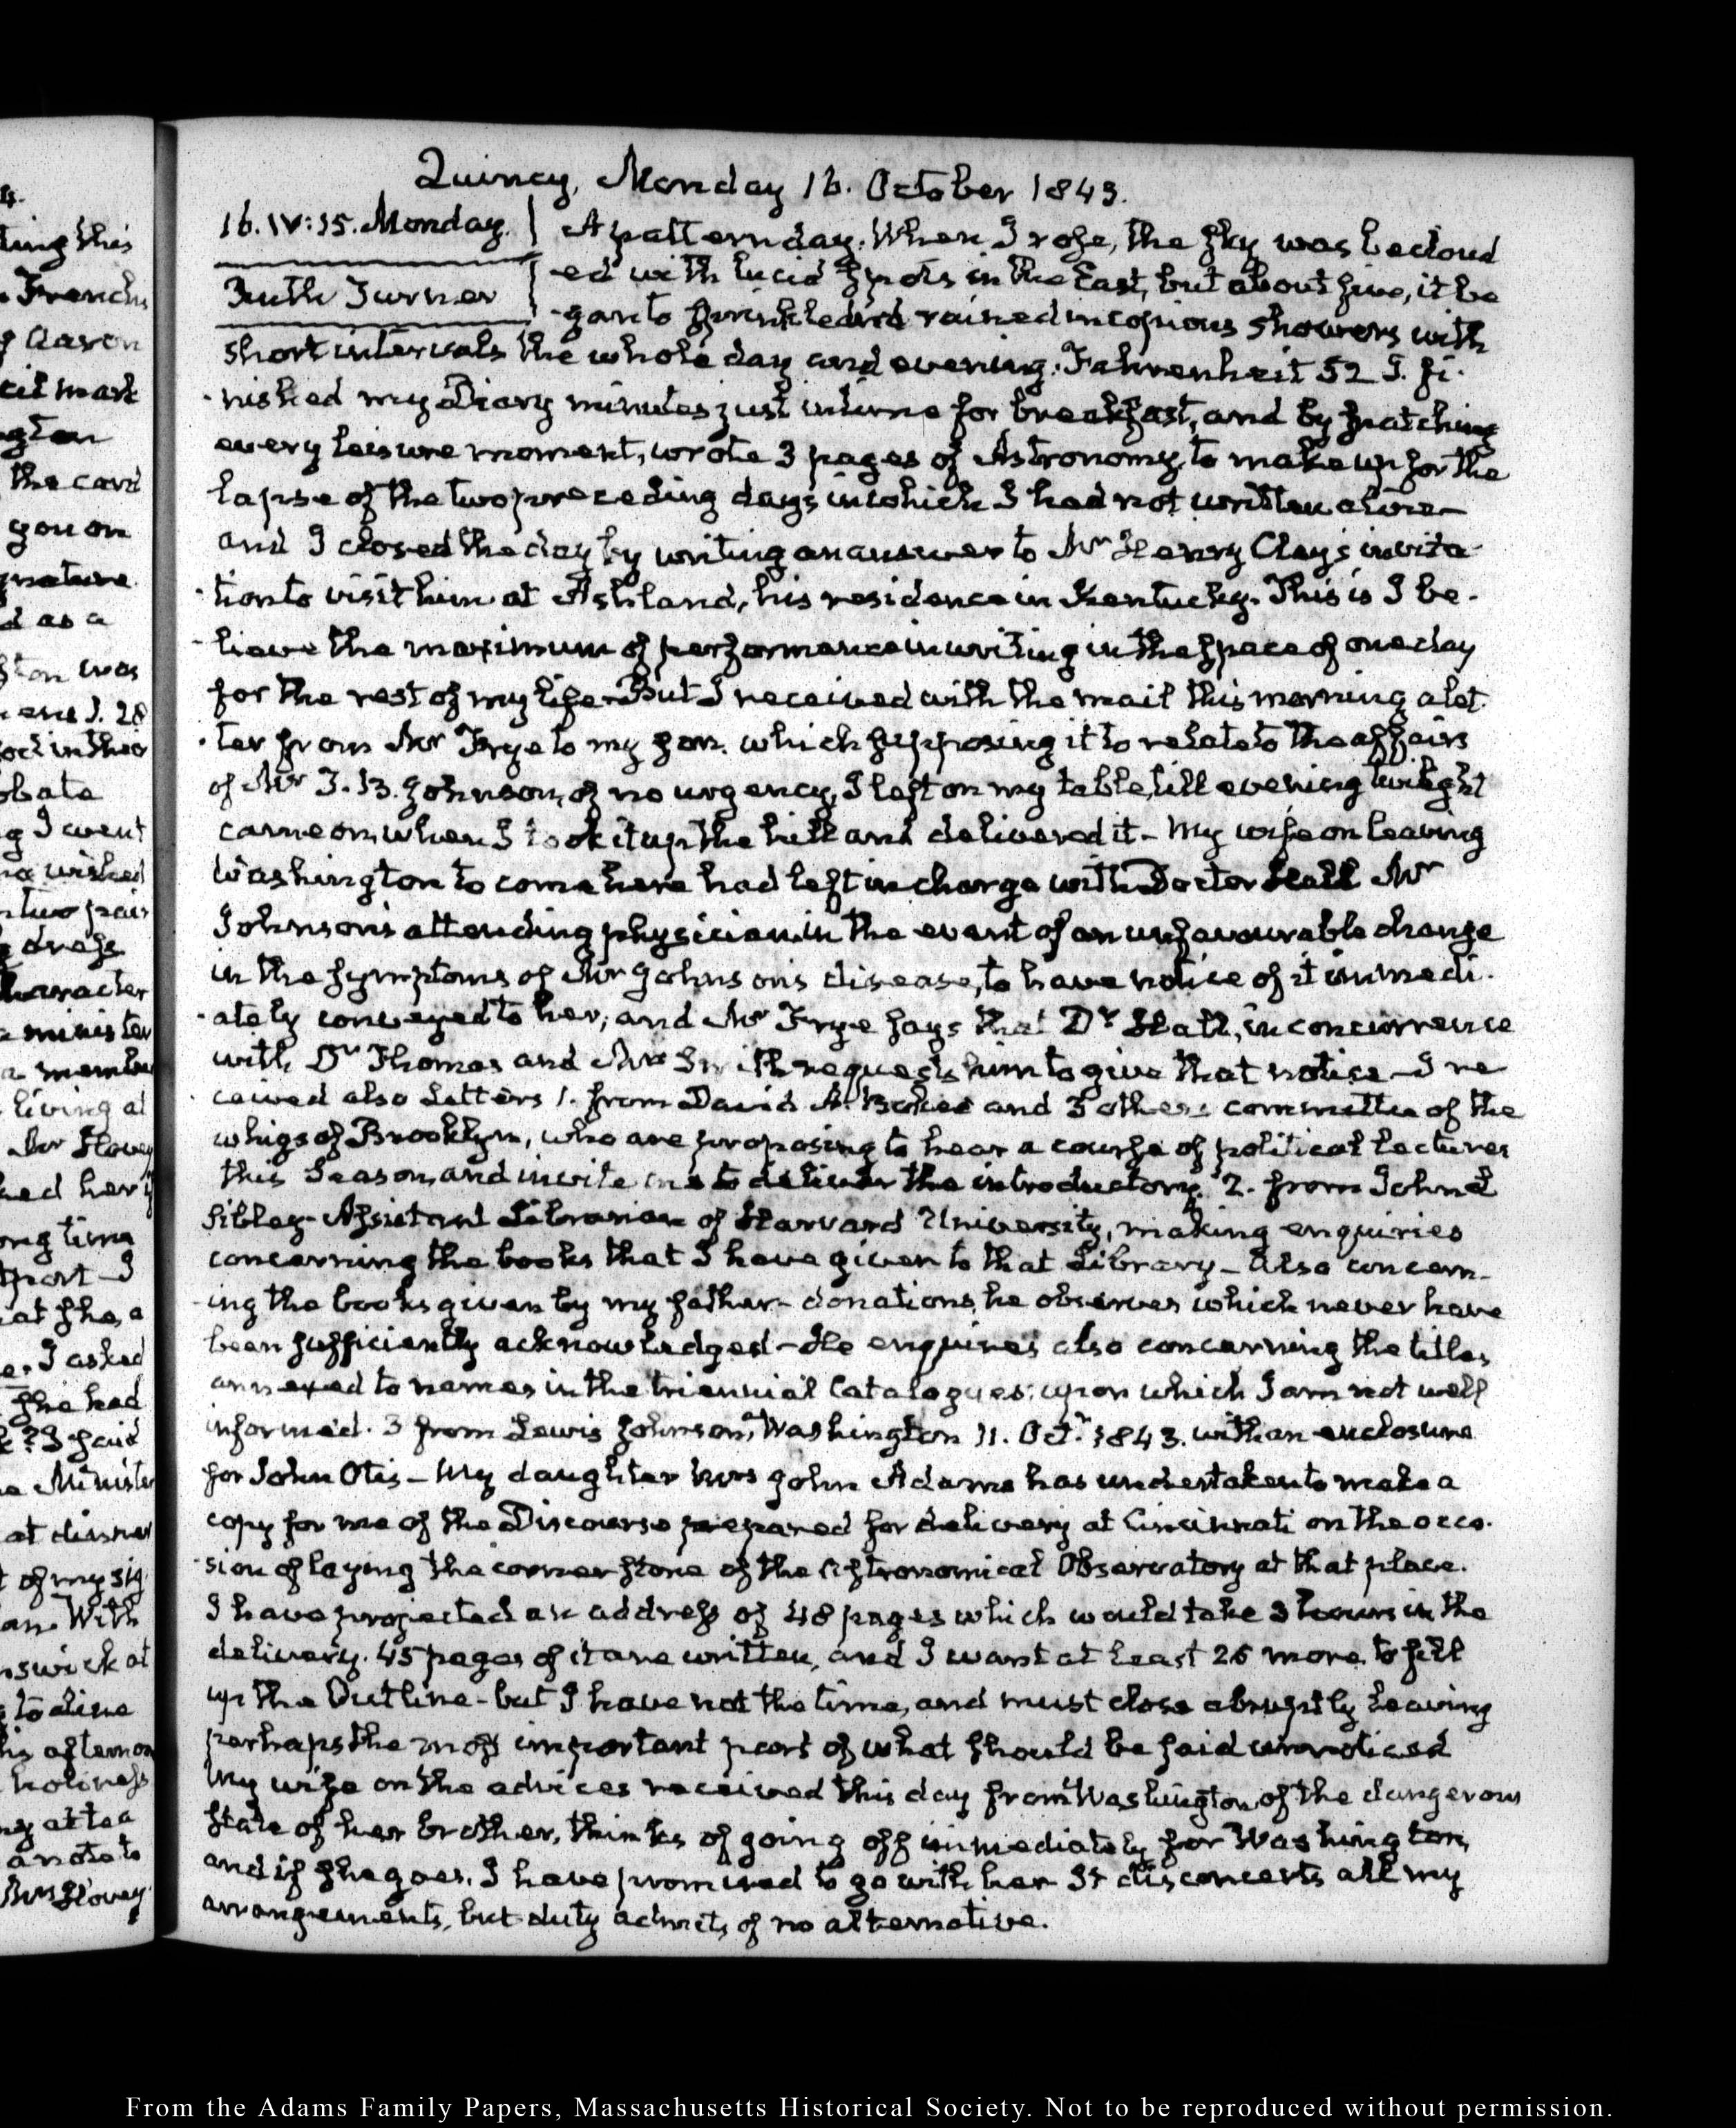 Quincy, Monday 16. October 1843.
16. IV:15. Monday.
Ruth Turner
A pattern day. When I rose, the sky was becloud
-ed with lucid spots in the East, but about five, it be
-gan to sprinkle and rained in copious showers with
short intervals the whole day and evening. Fahrenheit 52 I. fi-
-nished my Diary minutes just in time for breakfast, and by snatching
every leisure moment, wrote 3 pages of Astronomy, to make up for the
lapse of the two preceding days in which I had not written a line—
and I closed the day by writing an answer to Mr Henry Clay's invita-
-tion to visit him at Ashland, his residence in Kentucky. This is I be-
-lieve the maximum of performance in writing in the space of one day
for the rest of my life— But I received with the mail this morning a let-
-ter from Mr Frye to my son, which supposing it to relate to the affairs
of Mr T. B. Johnson, of no urgency, I left on my table, till evening twilight
came on, when I took it up the hill and delivered it— My wife on leaving
Washington to come here had left in charge with Doctor Hall Mr
Johnson's attending physician, in the event of an unfavourable change
in the symptoms of Mr Johnson's disease, to have notice of it immedi-
-ately conveyed to her; and Mr Frye says that Dr Hall, in concurrence
with Dr Thomas and Mrs Smith requests him to give that notice— I re
ceived also Letters 1. from David A. and 3 others committee of the
whigs of Brooklyn, who are proposing to hear a course of political lectures
this Season, and invite me to deliver the introductory. 2. from John L
Sibley— Assistant Librarian of Harvard University, making enquiries
concerning the books that I have given to that Library— Also concern-
-ing the books given by my father— donations, he observes which never have
been sufficiently acknowledged— He enquires also concerning the titles
annexed to names in the triennial Catalogues; upon which I am not well
informed. 3 from Lewis Johnson, Washington 11. Octr 1843. with an enclosure
for John Otis— My daughter Mrs John Adams has undertaken to make a
copy for me of the Discourse prepared for delivery at Cincinnati on the occa-
-sion of laying the corner stone of the Astronomical Observatory at that place.
I have projected an address of 48 pages which would take 3 hours in the
delivery. 45 pages of it are written, and I want at least 25 more to fill
up the Outline— but I have not the time, and must close abruptly leaving
perhaps the most important part of what should be said unnoticed
My wife on the advices received this day from Washington, of the dangerous
state of her brother, thinks of going off immediately for Washington,
and if she goes, I have promised to go with her It disconcerts all my
arrangements, but duty admits of no alternative.
From the Adams Family Papers, Massachusetts Historical Society. Not to be reproduced without permission.